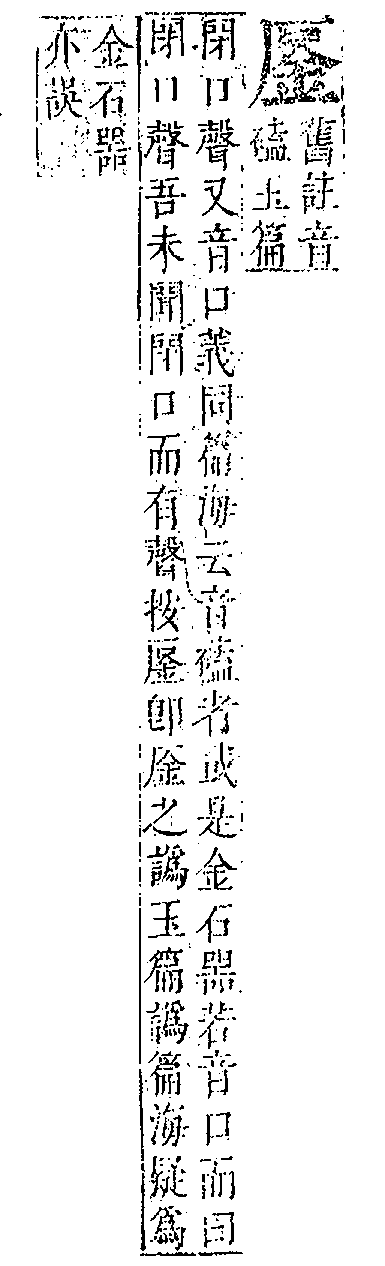 舊註音
磕玉篇
閉口聲又音口義同篇海云音磕者或是金石器若音口而曰
閉口聲吾未聞閉口而有聲按即之譌玉篇譌篇海疑爲
金石器
亦誤